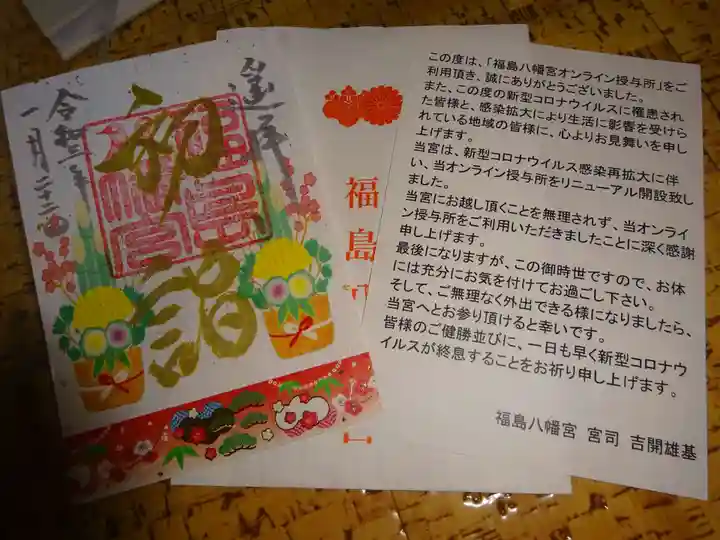 遥拝
初詣
一月二十二日
福島八
この度は、「福島八幡宮オンライン授与所」をご
利用頂き、誠にありがとうございました。
また、この度の新型コロナウイルスに罹患され
た皆様と、感染拡大により生活に影響を受けら
れている地域の皆様に、心よりお見舞いを申し
上げます。
当宮は、新型コロナウイルス感染再拡大に伴
い、当オンライン授与所をリニューアル開設致し
ました。
当宮にお越し頂くことを無理されず、当オンライ
ン授与所をご利用いただきましたことに深く感謝
申し上げます。
最後になりますが、この御時世ですので、お体
には充分にお気を付けてお過ごし下さい。
そして、ご無理なく外出できる様になりましたら、
当宮へとお参り頂けると幸いです。
皆様のご健勝並びに、一日も早く新型コロナウ
イルスが終息することをお祈り申し上げます。
福島八幡宮 宮司 吉開雄基